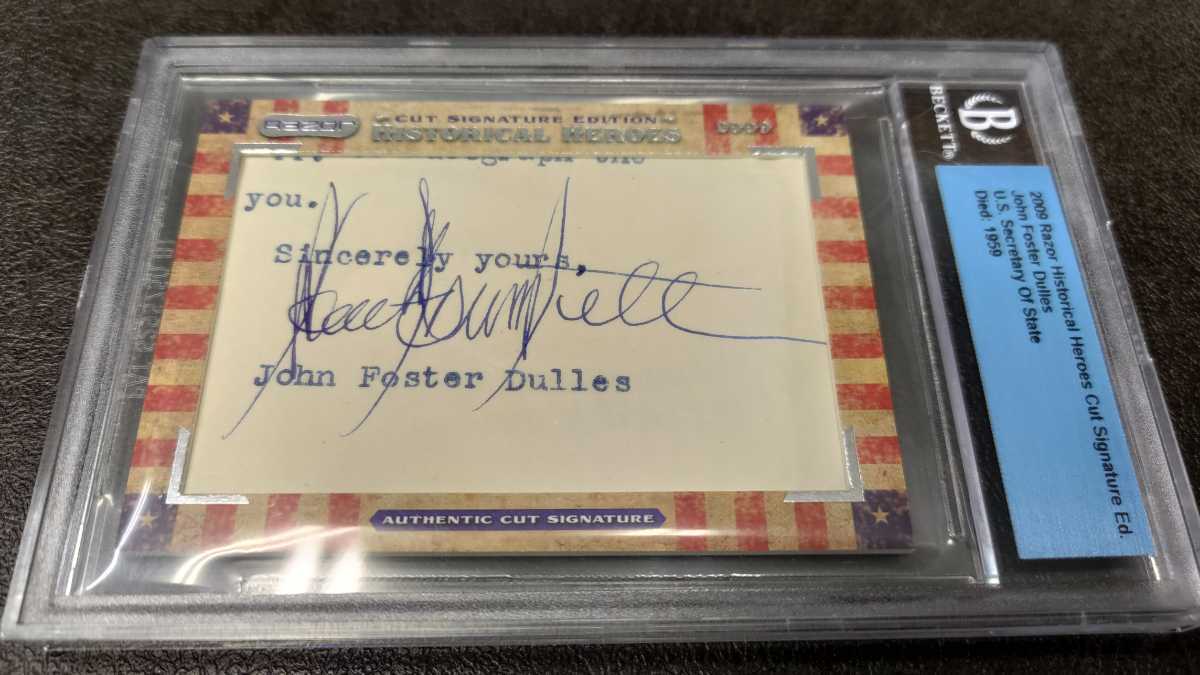 Razor
CUT SIGNATURE EDITION
HISTORICAL HEROES
2009
you.
Sincerely yours,
John Foster Dulles
AUTHENTIC CUT SIGNATURE
BECKETT
B
2009 Razor Historical Heroes Cut Signature Ed.
John Foster Dulles
U.S. Secretary Of State
Died: 1959